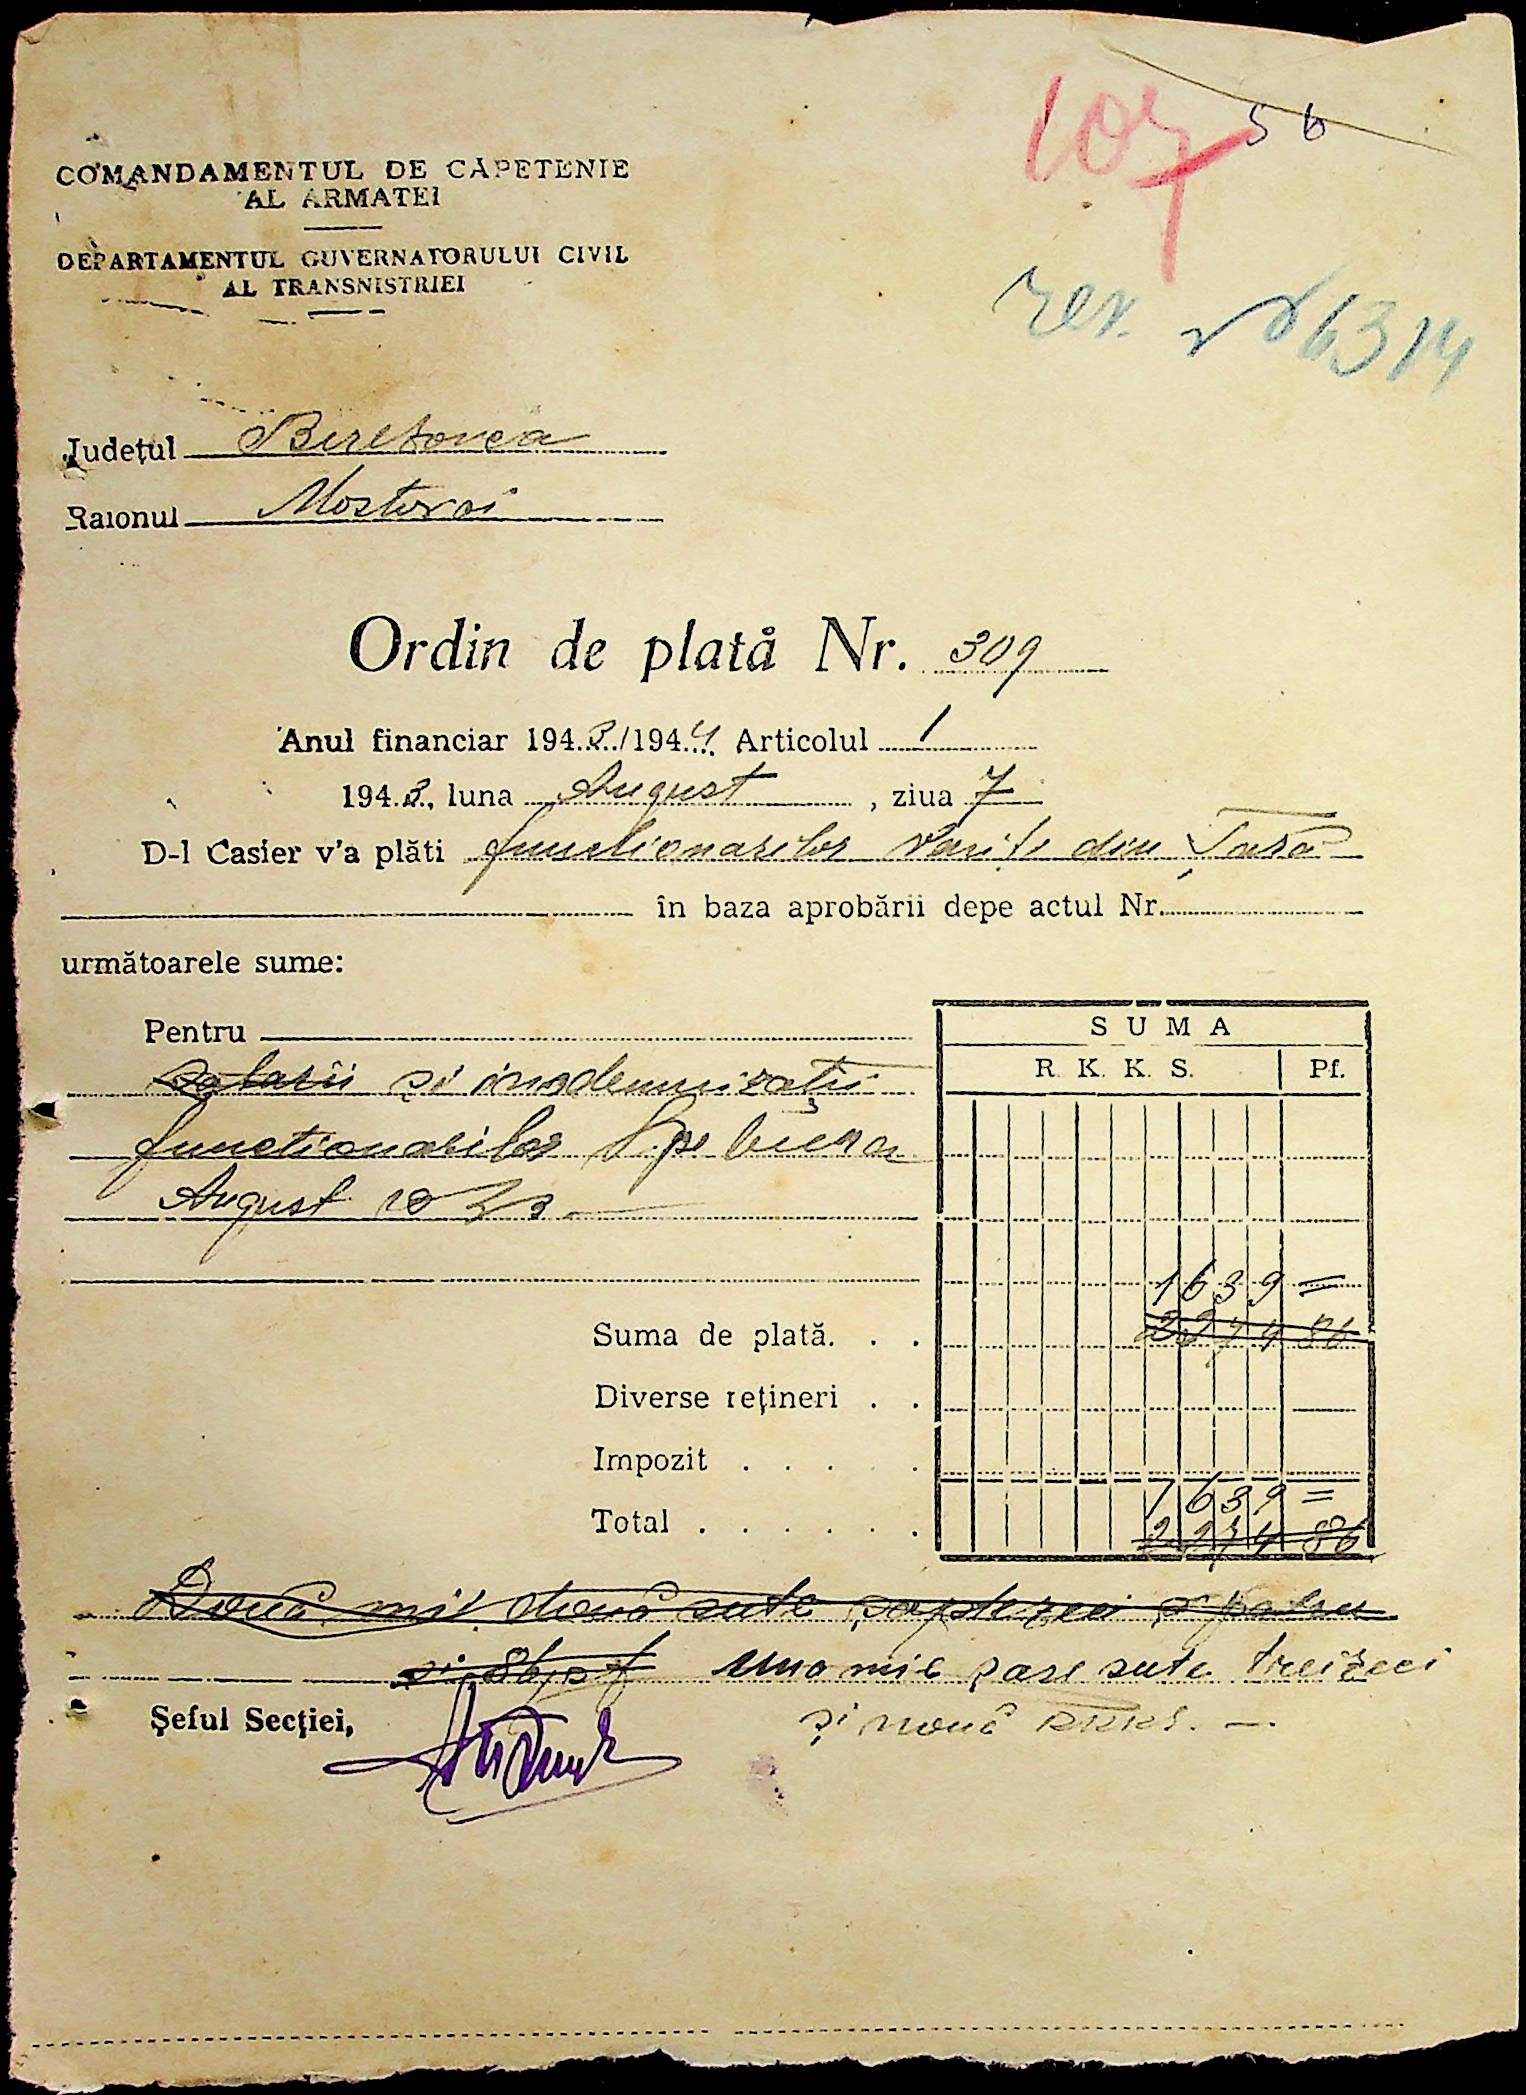 107
56
COMANDAMENTUL DE CĂPETENIE
AL ARMATEI
DEPARTAMENTUL GUVERNATORULUI CIVIL
AL TRANSNISTRIEI
rev. 6314
Județul Beresovca
Raionul Mostovoi
Ordin de plată Nr. 309
Anul financiar 1943/1944 Articolul 1
1943, luna August, ziua 7
D-l Casier v'a plăti functionarilor veniți din Țară
în baza aprobării depe actul Nr.
următoarele sume:
Pentru
SUMA
salarii și indemnizații
R. K. K. S. Pf.
functionarilor pe luna
August 1943
1639 =
Suma de plată. . . 2274 86
Diverse rețineri . . —
Impozit . . . . .
1639 =
Total . . . . . . 2274 86
Două mii două sute șaptezeci și patru
și 86 pf Una mie șase sute treizeci
Șeful Secției, și nouă RKKS. —